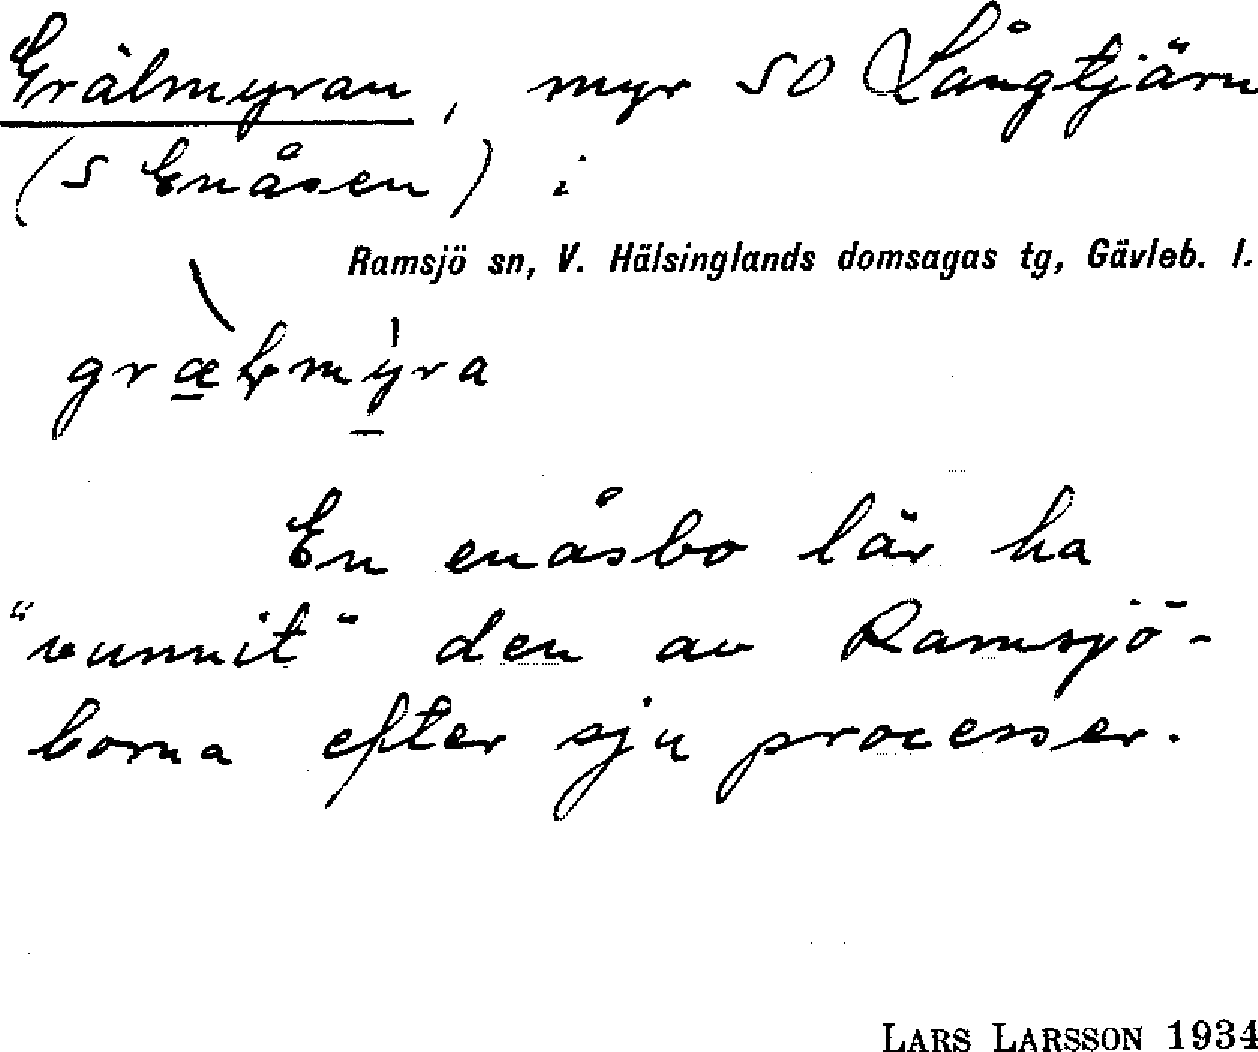 Grälmyran, myr SO Långtjärn
(S Enåsen) i
Ramsjö sn, V. Hälsinglands domsagas tg, Gävleb. l.
En enåsbo lär ha
"vunnit" den av Ramsjö-
borna efter sju processer.
LARS LARSSON 1934